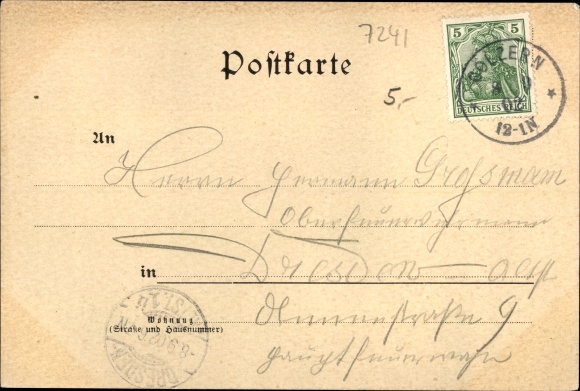 7241
5 5
Postkarte
DEUTSCHES REICH
GOLZERN
12-1N
5,-
An
Herrn Hermann Grossmann
Oberfeuerwehrmann
in Dresden-
Wohnung
(Straße und Hausnummer)
DRESDEN
9
Hauptfeuerwache